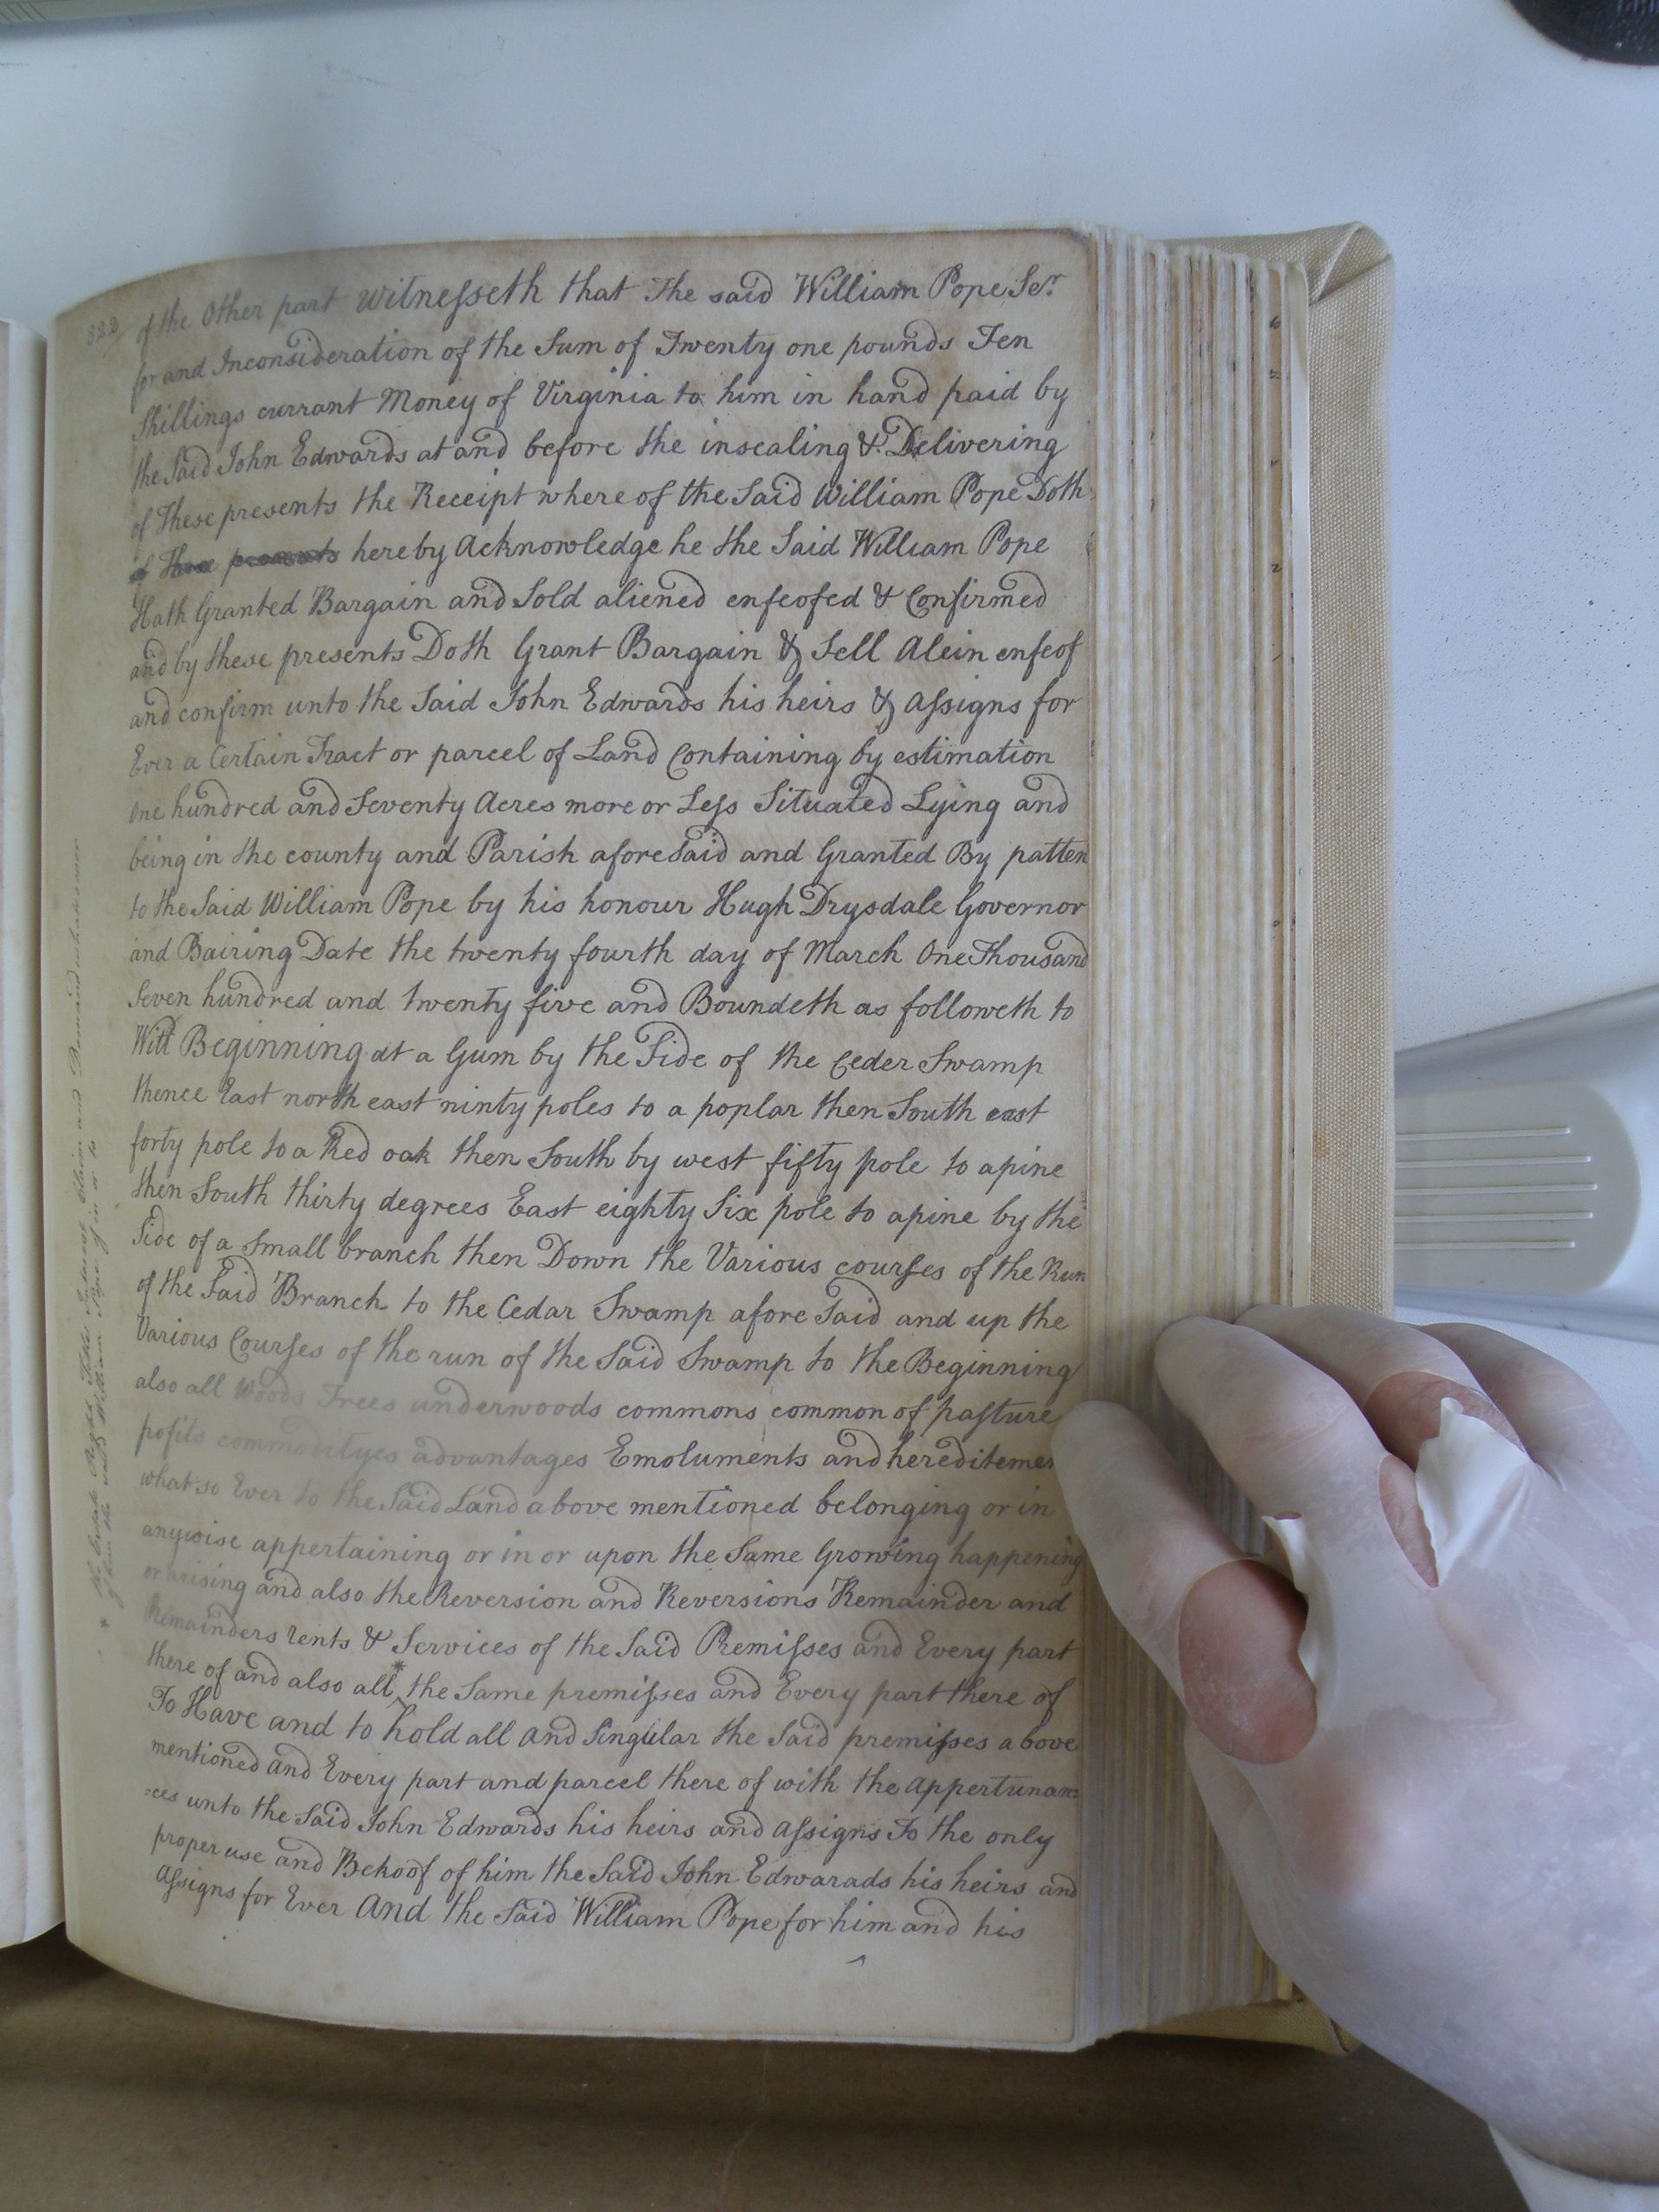 322
of the Other part Witnesseth that The said William Pope Ser.
for and Inconsideration of the Sum of Twenty one pounds Ten
Shillings currant Money of Virginia to him in hand paid by
the Said John Edwards at and before the insealing & Delivering
of These presents the Receipt where of the Said William Pope Doth
of These presents hereby Acknowledge he the Said William Pope
Hath Granted Bargain and Sold aliened enfeofed & Confirmed
and by these presents Doth Grant Bargain & Sell Alein enfeof
and confirm unto the Said John Edwards his heirs & Assigns for
Ever a Certain Tract or parcel of Land Containing by estimation
One hundred and Seventy Acres more or Less Situated Lying and
being in the county and Parish afore Said and Granted By patten
to the Said William Pope by his honour Hugh Drysdale Governor
and Bairing Date the twenty fourth day of March One Thousand
Seven hundred and twenty five and Boundeth as followeth to
Witt Beginning at a Gum by the Side of the Ceder Swamp
thence East north east ninty poles to a poplar then South east
forty pole to a Red oak then South by west fifty pole to a pine
then South thirty degrees East eighty Six pole to a pine by the
Side of a Small branch then Down the Various courses of the Run
of the Said Branch to the Cedar Swamp afore Said and up the
Various Courses of the run of the Said Swamp to the Beginning
also all Woods Trees underwoods commons common of pasture
pofits commodityes advantages Emoluments and hereditemen
what so Ever to the Said Land above mentioned belonging or in
anywise appertaining or in or upon the Same Growing happening
or arising and also the Reversion and Reversions Remainder and
Remainders rents & Services of the Said Premisses and Every part
there of and also all * the Same premisses and Every part there of
To Have and to hold all and Singular the Said premisses above
mentioned and Every part and parcel there of with the Appertunan=
=ces unto the Said John Edwards his heirs and Assigns To the only
proper use and Behoof of him the Said John Edwarads his heirs and
Assigns for Ever And the Said William Pope for him and his
* the Estate Right Title Interest Claim and Demand whatsoever
of him the said William Pope of in or to